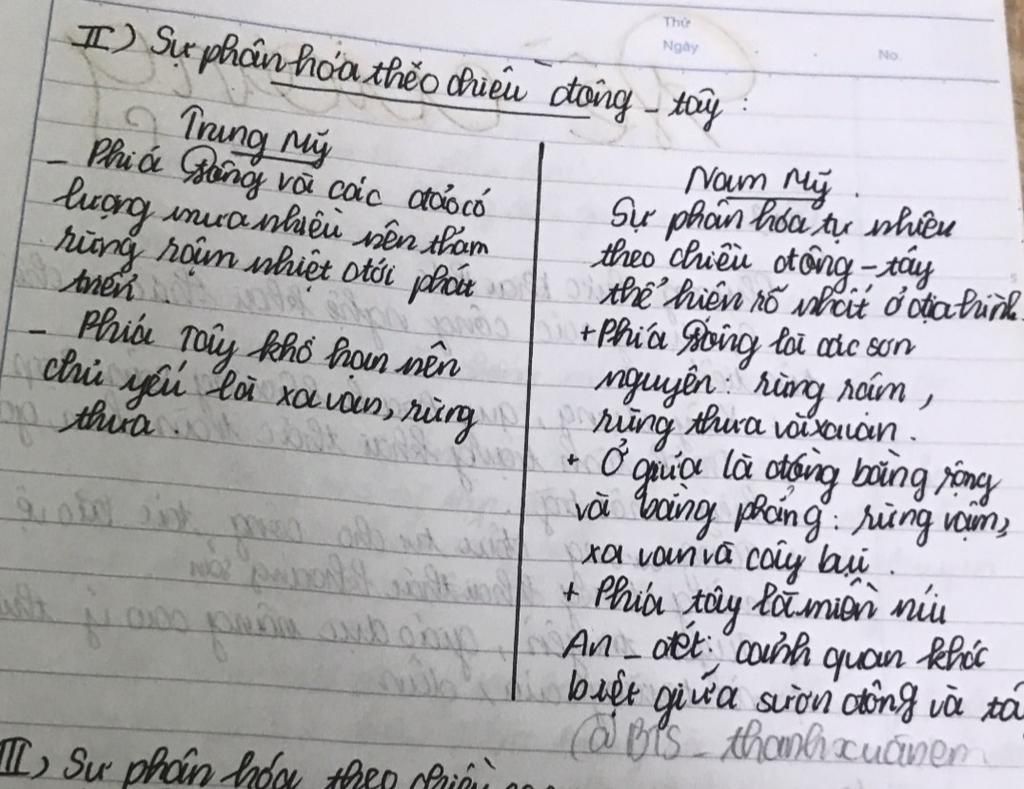 Thứ
Ngày
No.
II) Sự phân hóa theo chiều đông - tây :
Trung Mỹ
- Phía Đông và các đảo có
lượng mưa nhiều nên thảm
rừng rậm nhiệt đới phát
triển.
- Phía Tây khô hạn nên
chủ yếu là xavan, rừng
thưa.
Nam Mỹ.
Sự phân hóa tự nhiên
theo chiều đông - tây
thể hiện rõ nhất ở địa hình
+ Phía Đông là các sơn
nguyên: rừng rậm,
rừng thưa và xavan.
+ Ở giữa là đồng bằng rộng
và bằng phẳng: rừng rậm,
xa van và cây bụi.
+ Phía tây là miền núi
An - đét: cảnh quan khác
biệt giữa sườn đông và
@BTS_thanhxuanem
III) Sự phân hóa theo chiều